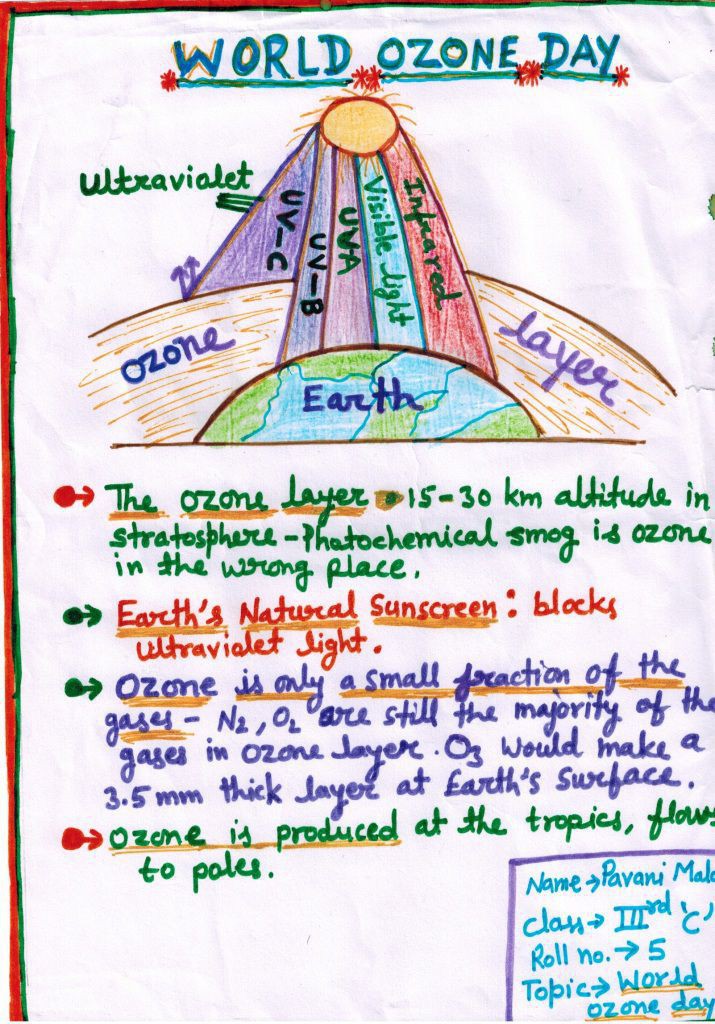 WORLD OZONE DAY
Ultraviolet
UV-C
UV-B
UVA
Visible light
Infrared
Ozone
layer
Earth
The ozone layer 15-30 km altitude in
stratosphere - Photochemical smog is ozone
in the wrong place.
Earth's Natural Sunscreen: blocks
Ultraviolet light.
Ozone is only a small fraction of the
gases - N2, O2 are still the majority of the
gases in Ozone layer. O3 would make a
3.5 mm thick layer at Earth's Surface.
Ozone is produced at the tropics, flows
to poles.
Name → Pavani
Class → IIIrd 'C'
Roll no. → 5
Topic → World
ozone day